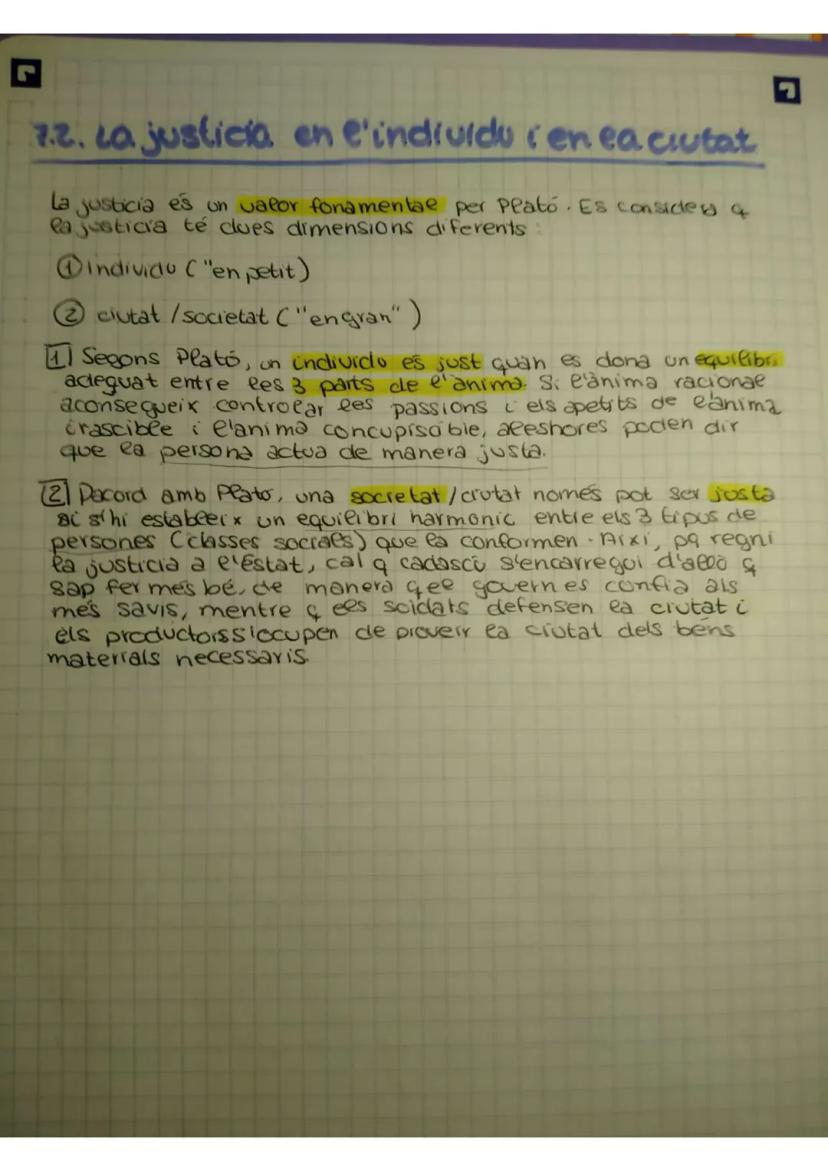 7.2. La justícia en l'individu i en la ciutat
La justícia és un valor fonamental per Plató. Es considera q
la justícia té dues dimensions diferents:
① individu ("en petit)
② ciutat / societat ("en gran")
1 Segons Plató, un individu és just quan es dona un equilibri
adequat entre les 3 parts de l'ànima. Si l'ànima racional
aconsegueix controlar les passions i els apetits de l'ànima
irascible i l'ànima concupiscible, aleshores poden dir
que la persona actua de manera justa.
2 D'acord amb Plató, una societat / ciutat només pot ser justa
si s'hi estableix un equilibri harmònic entre els 3 tipus de
persones (classes socials) que la conformen. Així, pq regni
la justícia a l'Estat, cal q cadascú s'encarregui d'allò q
sap fer més bé, de manera q el govern es confia als
més savis, mentre q els soldats defensen la ciutat i
els productors s'ocupen de proveir la ciutat dels béns
materials necessaris.